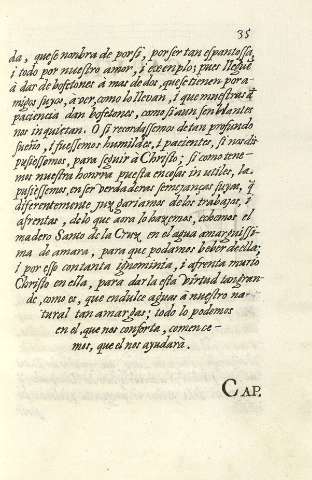 35
da, que se nonbra de por si, por ser tan espantossa,
i todo por nuestro amor, i exemplo; pues llegue
à dar de bofetones à mas de dos, que se tienen por a-
migos suyos, a ver, como lo llevan, i que muestras de
paciencia dan bofetones, como si aun senblantes
nos inquietan. O si recordassemos de tan profundo
sueño, i fuessemos humildes, i pacientes, si nos dis-
pusiessemos, para seguir à Christo; si como tene-
mos nuestra honrra puesta en cosas in utiles, la
pusiessemos, en ser verdaderas semejanças suyas, q̃
diferentemente juzgariamos de los trabajos, i
afrentas, de lo que aora lo hazemos, echemos el
madero Santo de la Cruz en el agua amarguissi-
ma de amara, para que podamos beber de ella;
i por esso con tanta ignominia, i afrenta murio
Christo en ella, para darla esta virtud tan gran-
de, como es, que endulce aguas a nuestro na-
tural tan amargas; todo lo podemos
en el, que nos conforta, comence-
mos, que el nos ayudarà.
CAP.